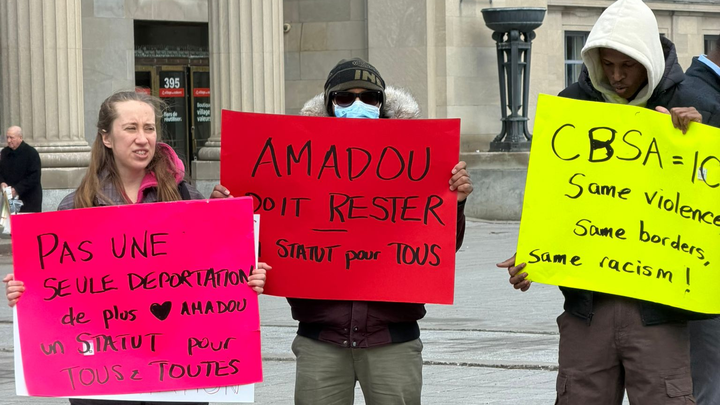 395
PAS UNE
SEULE DEPORTATION
de plus ♥ AMADOU
un STATUT pour
TOUS & TOUTES
AMADOU
DOIT RESTER
STATUT pour TOUS
CBSA = IC
Same violence
Same borders,
Same racism!